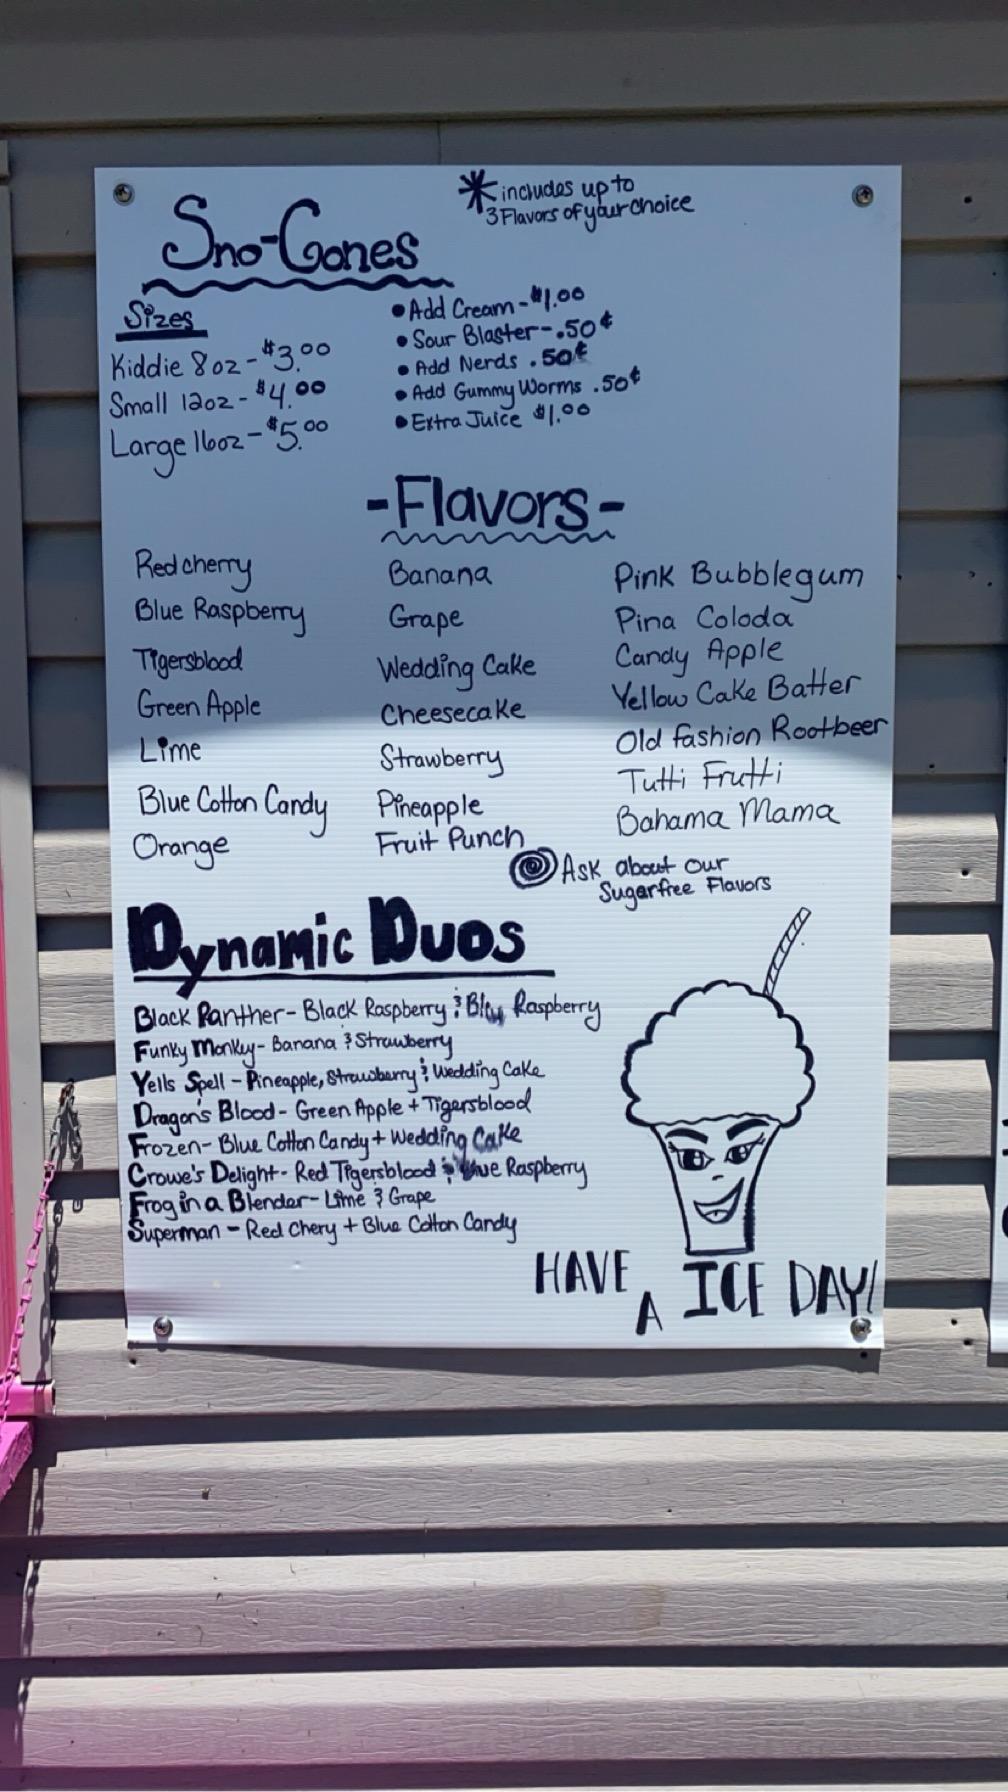 Sno-Cones
* includes up to
3 Flavors of your choice
Sizes
Kiddie 8oz - $3.00
Small 12oz - $4.00
Large 16oz - $5.00
• Add Cream - $1.00
• Sour Blaster - .50¢
• Add Nerds .50¢
• Add Gummy Worms .50¢
• Extra Juice $1.00
- Flavors -
Red cherry
Blue Raspberry
Tigersblood
Green Apple
Lime
Blue Cotton Candy
Orange
Banana
Grape
Wedding Cake
Cheesecake
Strawberry
Pineapple
Fruit Punch
Pink Bubblegum
Pina Coloda
Candy Apple
Yellow Cake Batter
Old fashion Rootbeer
Tutti Frutti
Bahama Mama
Ask about our
Sugarfree Flavors
Dynamic Duos
Black Panther - Black Raspberry & Blu Raspberry
Funky Monkey - Banana & Strawberry
Yells Spell - Pineapple, Strawberry & Wedding Cake
Dragon's Blood - Green Apple + Tigersblood
Frozen - Blue Cotton Candy + Wedding Cake
Crowe's Delight - Red Tigersblood & Blue Raspberry
Frog in a Blender - Lime & Grape
Superman - Red Chery + Blue Cotton Candy
HAVE A ICE DAY!